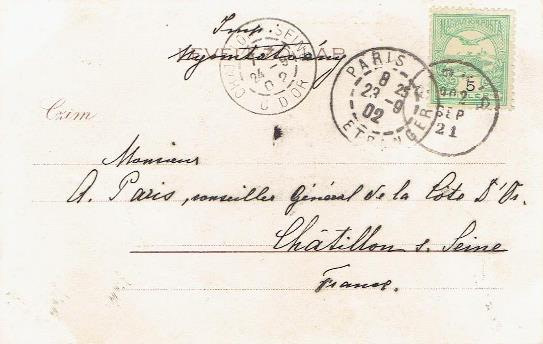 Imp.
LEVELEZŐ-LAP
Nyomtatvány
CHATILLON-SUR-SEINE
24 -9
02
CÔTE D'OR
PARIS
8 25
23 -9
02
ETRANGER
MAGYAR KIR. POSTA
5
902
SEP
21
Czim
Monsieur
A. Paris, conseiller Général de la Côte D'Or.
Châtillon s. Seine
France.